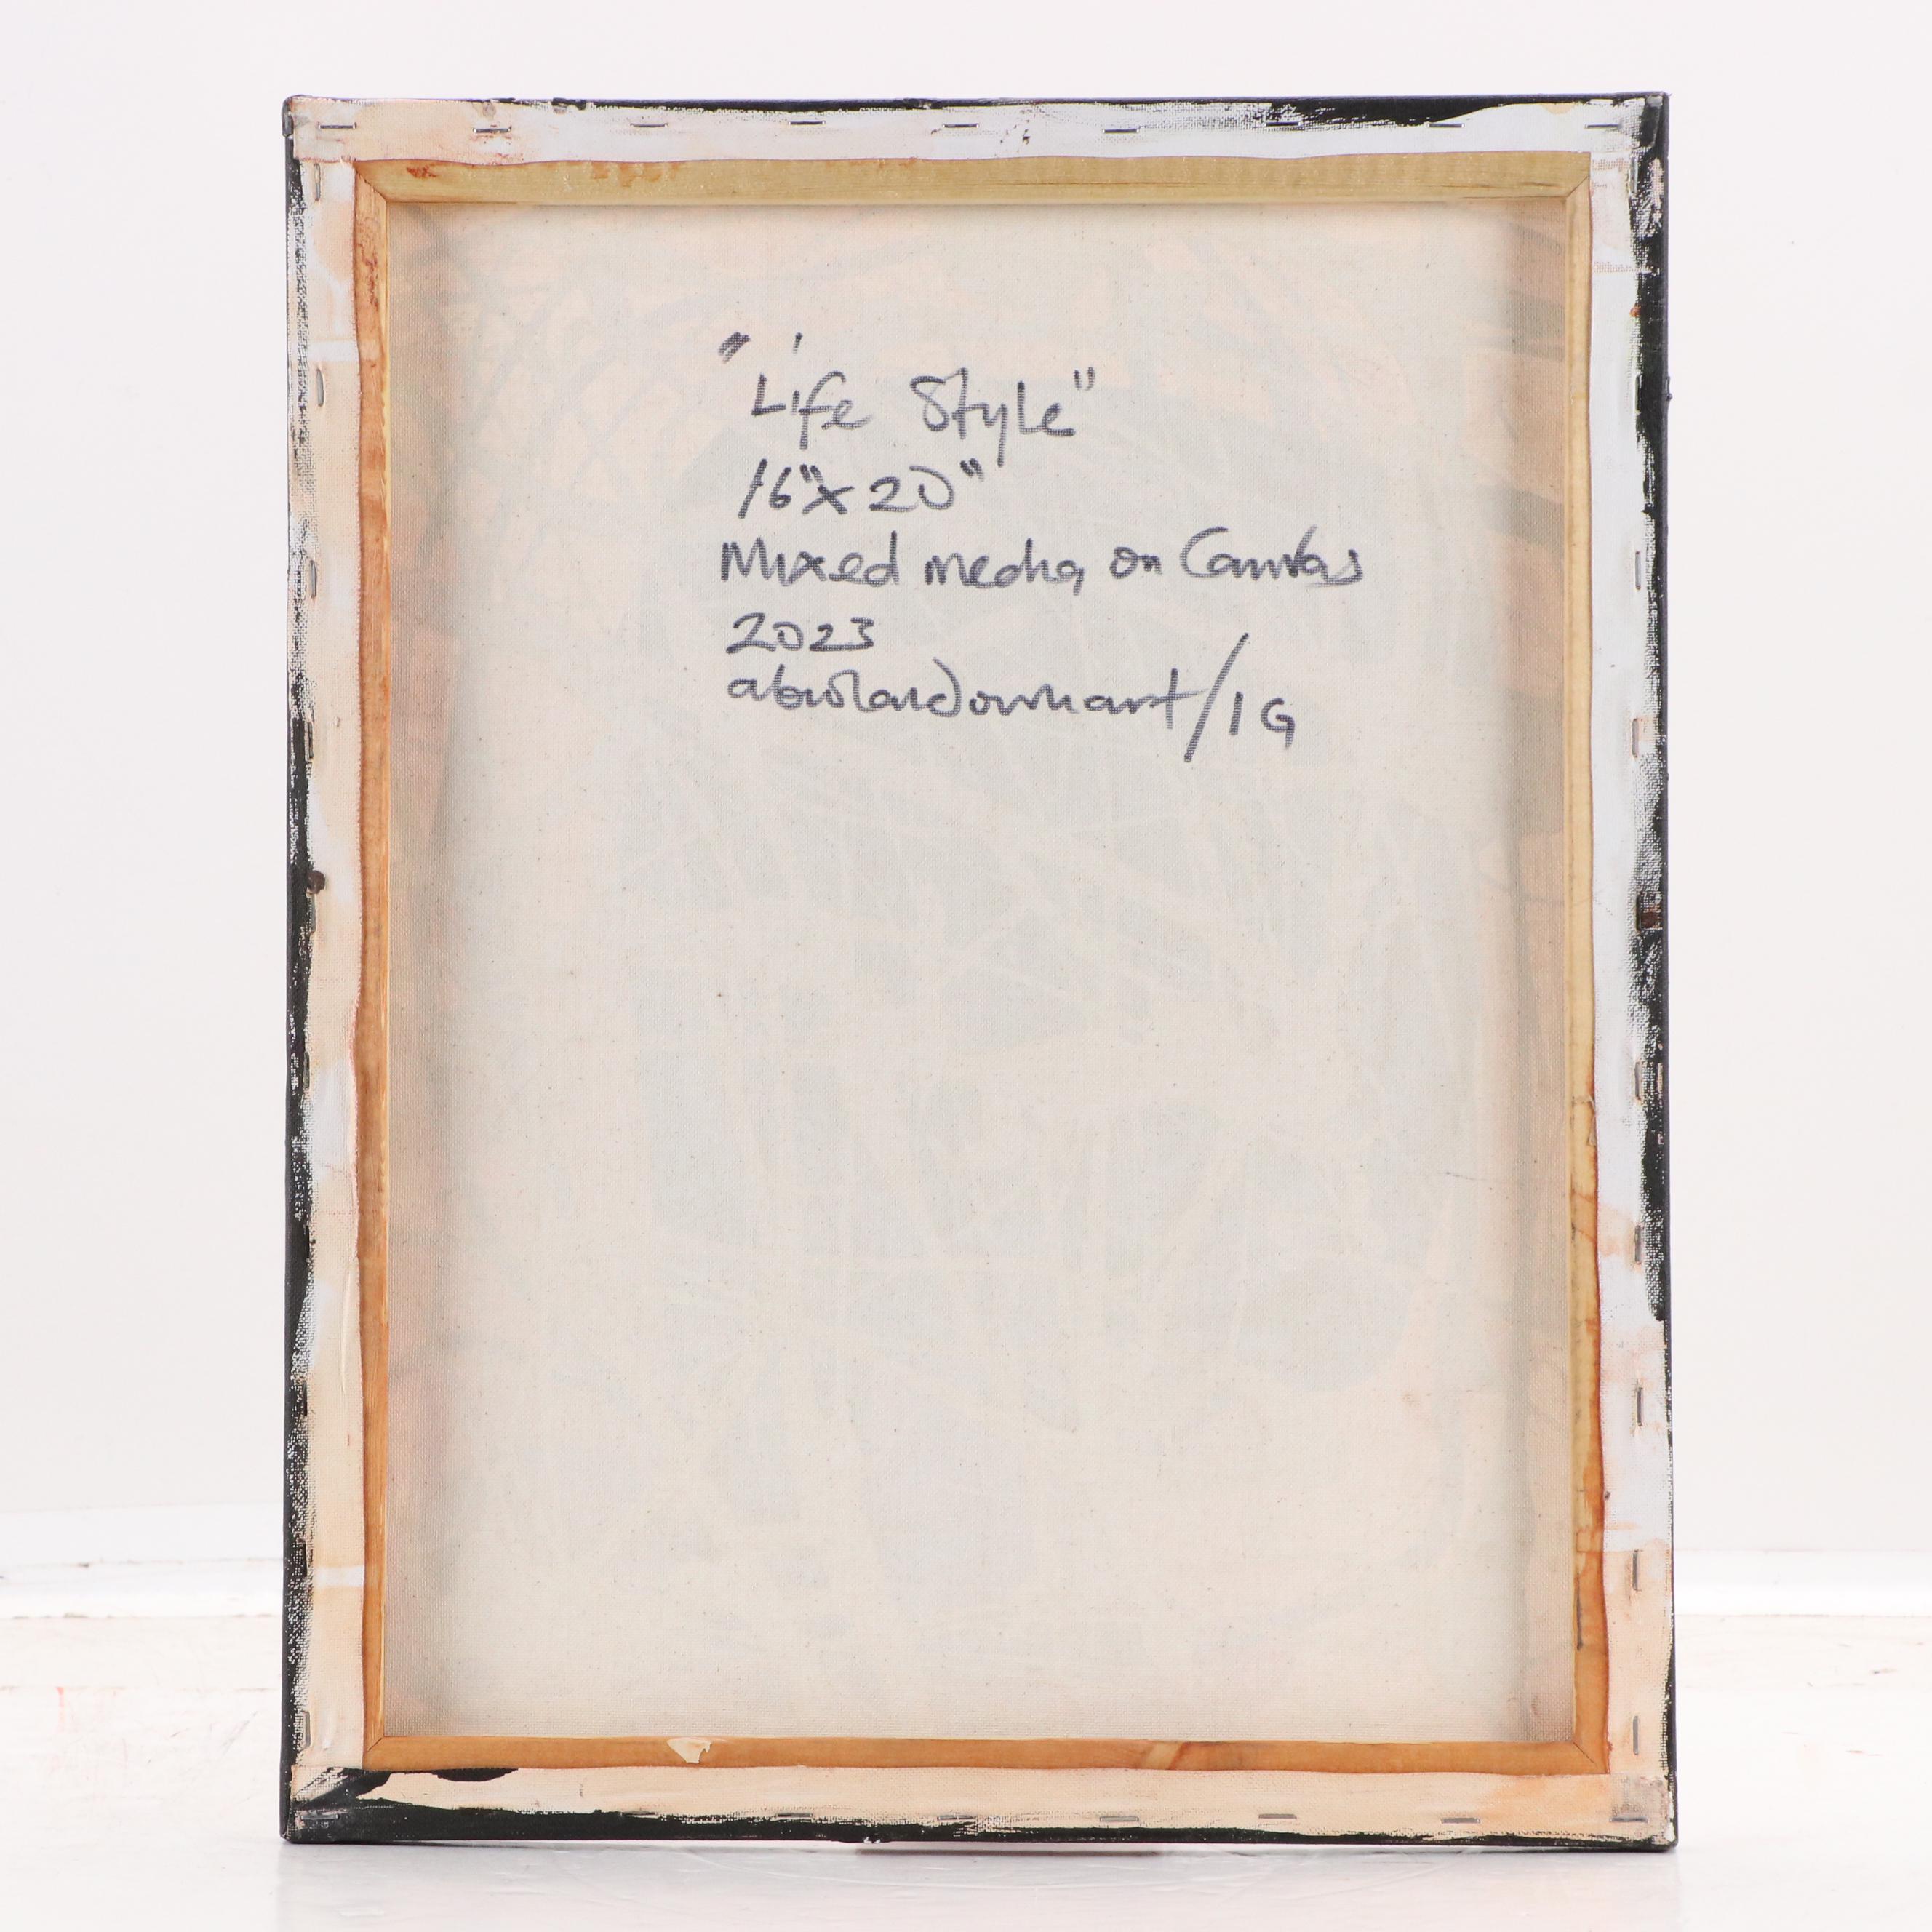 "Life Style"
16"x20"
Mixed media on Canvas
2023
/IG